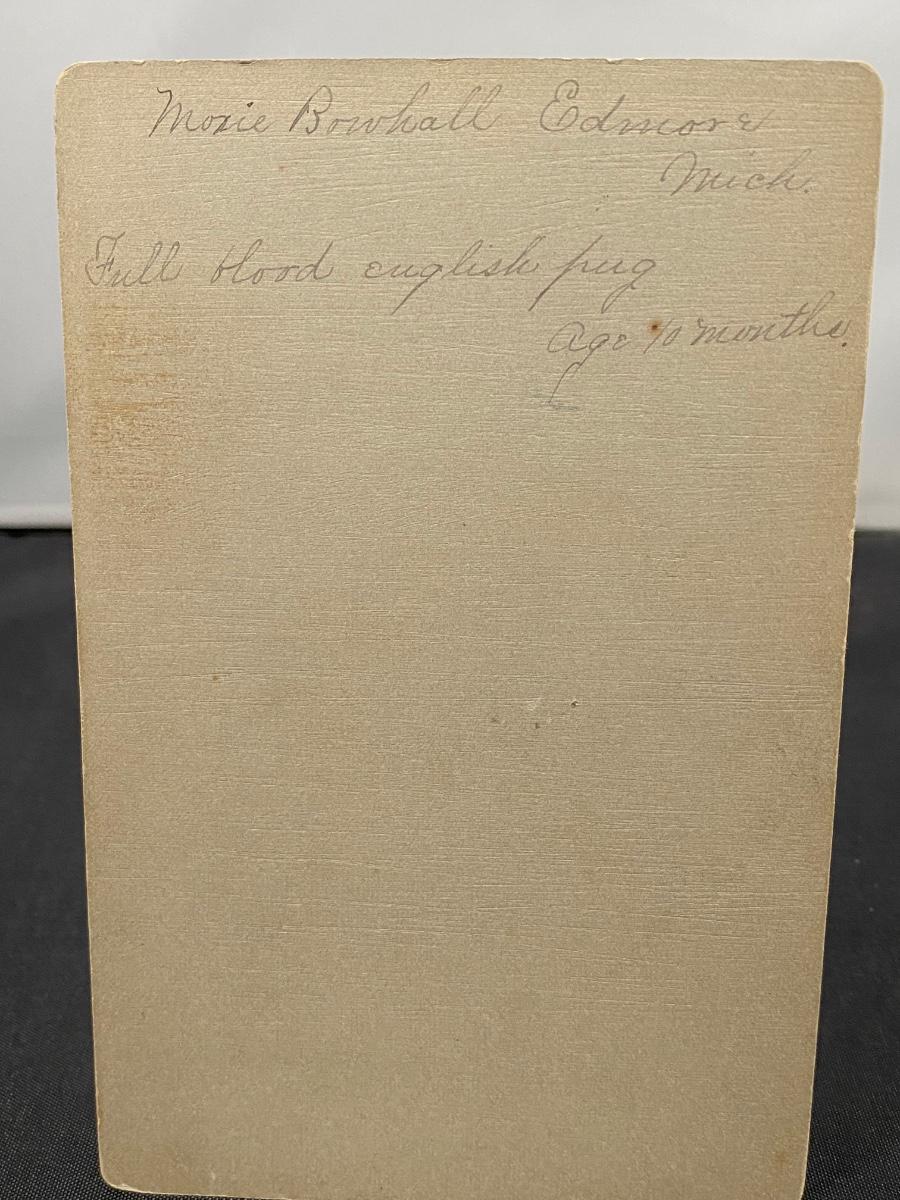 Moxie Bowhall Edmore
Mich.
Full blood english pug
Age 10 months.